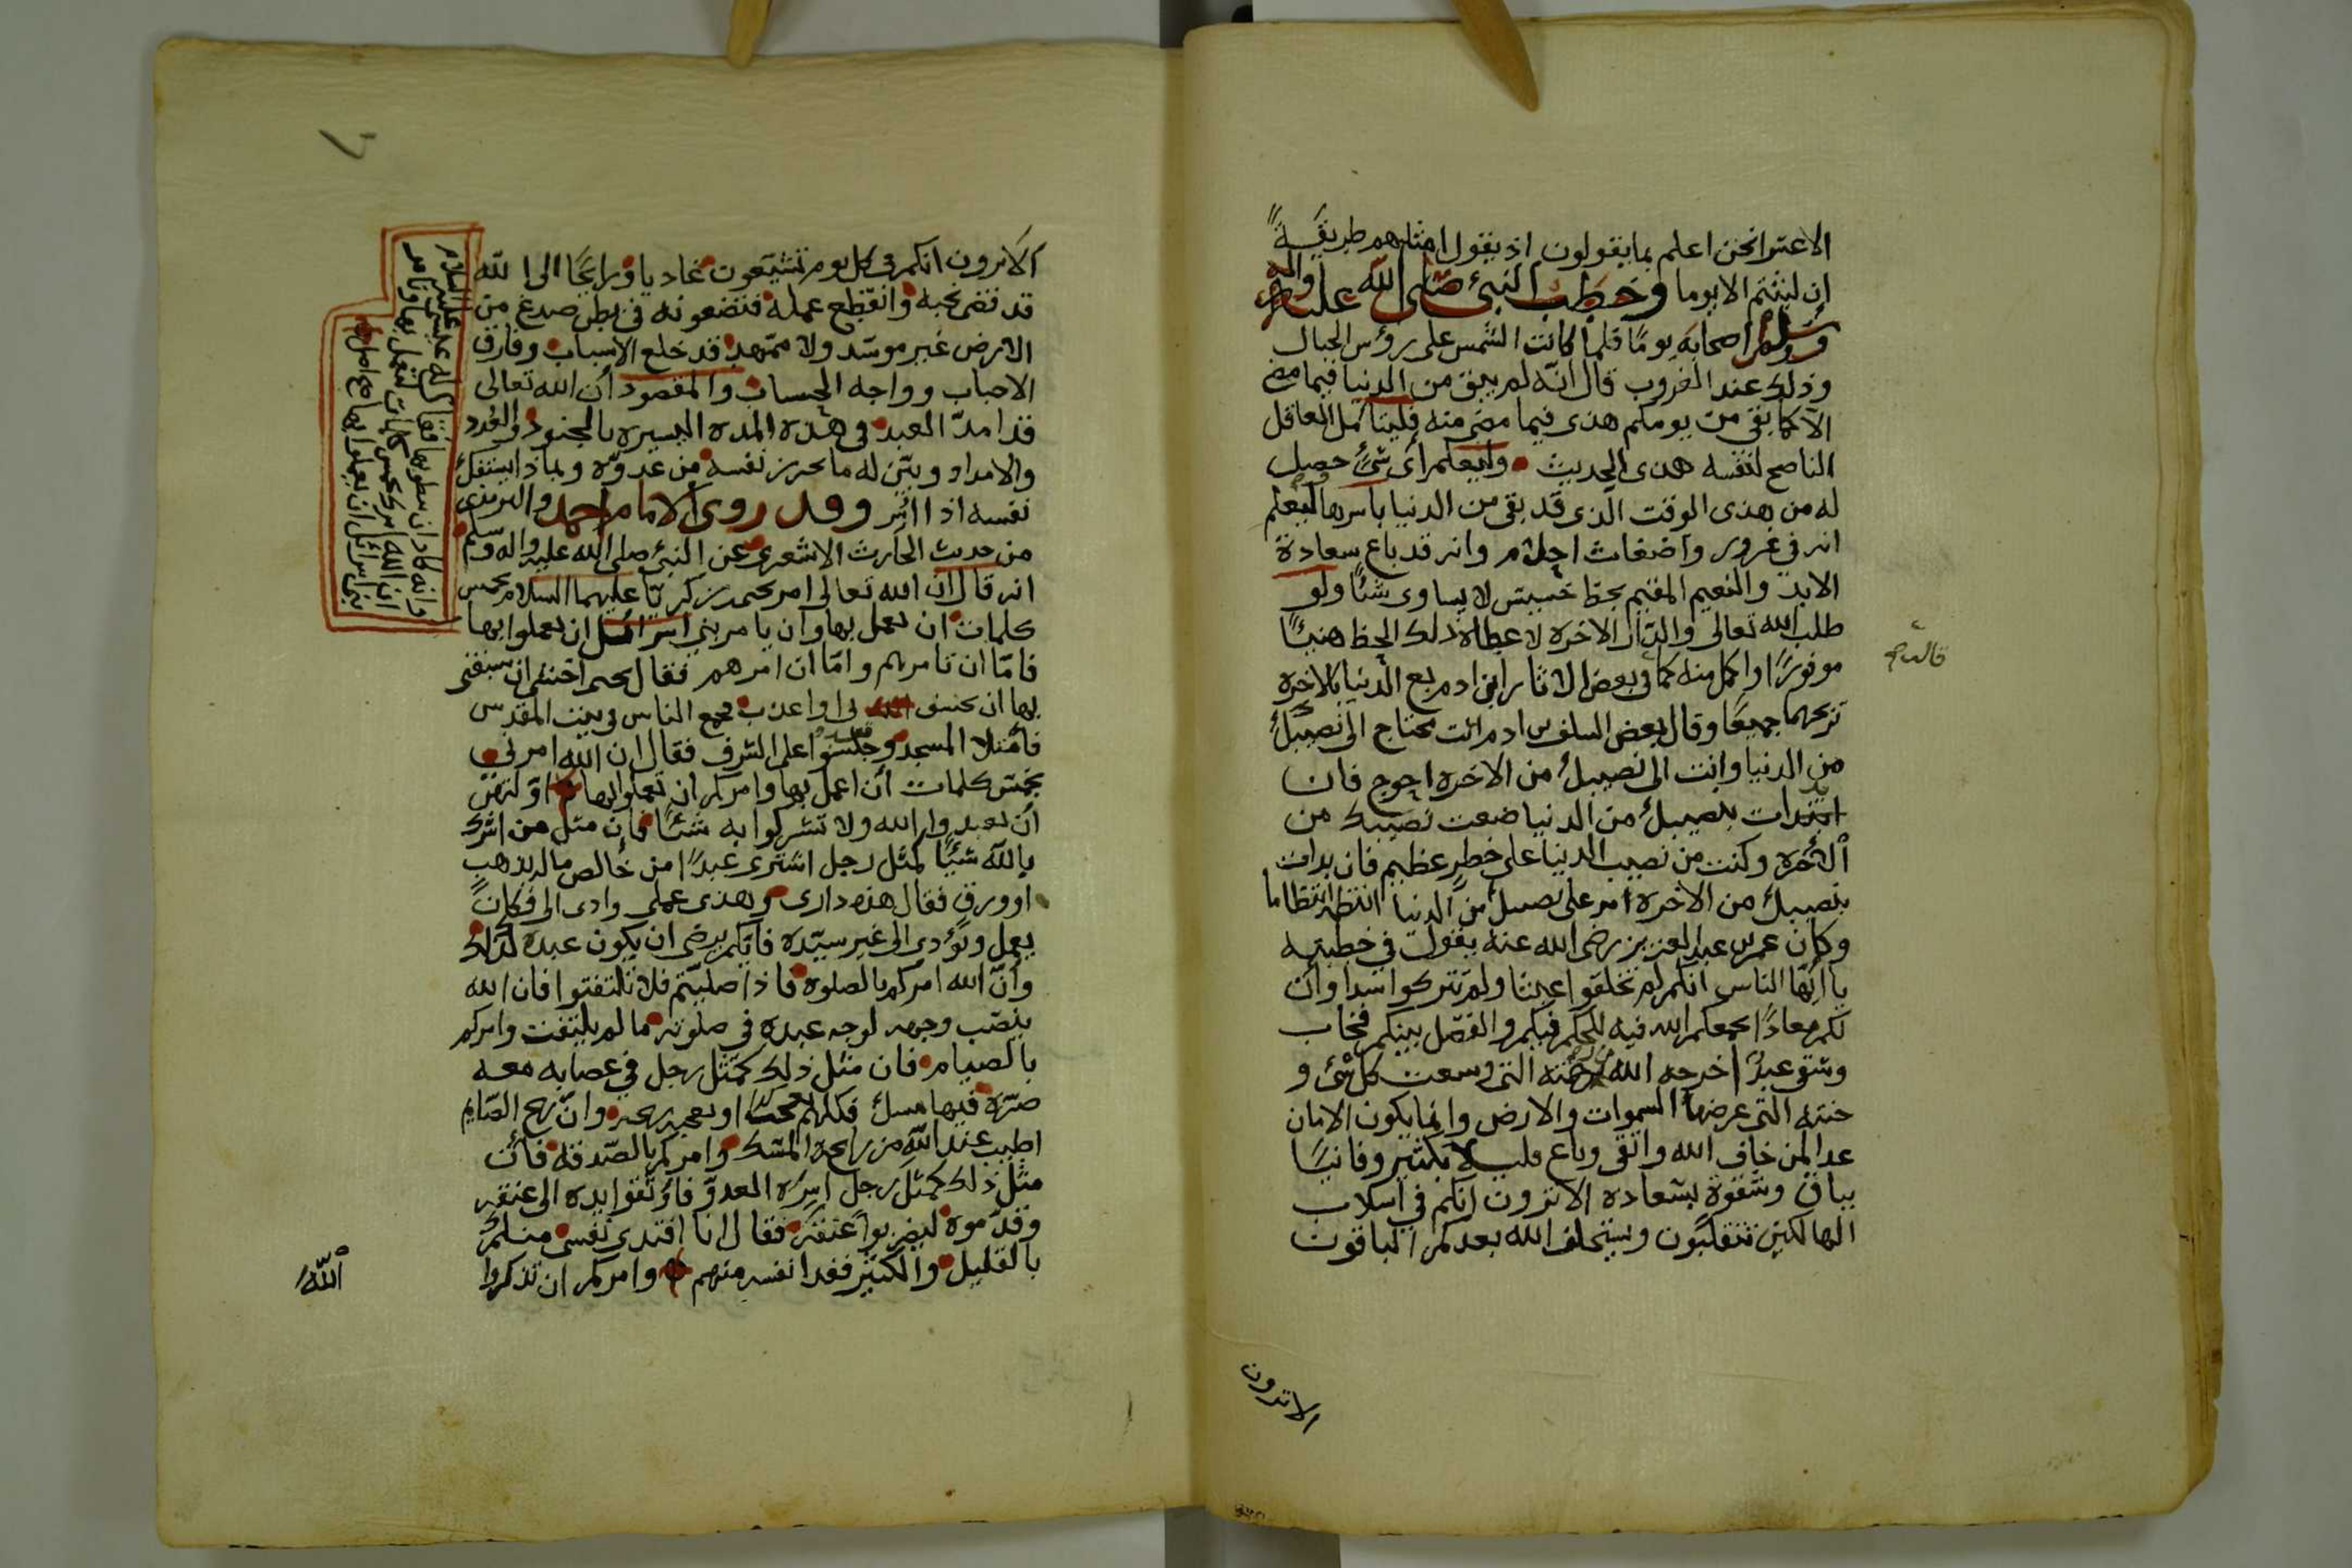 الاعشرا نحن اعلم بما يقولون اذ يقول امثلهم طريقةً
ان لبثتم الا يوما وخطب النبئ صلى الله عليه واله
وسلم اصحابه يومًا فلما كانت الشمس على رؤس الجبال
وذلك عند الغروب قال انّه لم يبق من الدنيا فيما مضى
الا كما بقى من يومكم هذى فيما مضى منه فليتأمل العاقل
الناصح لنفسه هذى الحديث وليعلم أى شئ حصل
له من هذى الوقت الذى قد بقى من الدنيا باسرها ليعلم
انه في غرور واضغاث احلام وانه قد باع سعادة
الابد والنعيم المقيم بحظ خسيس لا يساوى شئًا ولو
طلب الله تعالى والدار الاخره لاعطاه ذلك الحظ هنيئًا
موفورًا واكمل منه كما في بعض الاثار ابن ادم بع الدنيا بالاخره
تربحهما جميعًا وقال بعض السلف بن ادم انت محتاج الى نصيبك
من الدنيا وانت الى نصيبك من الاخره احوج فان
ابتدات بنصيبك من الدنيا ضعت نصيبك من
الأخره وكنت من نصيب الدنيا على خطرٍ عظيم فان بدات
بنصيبك من الاخره امر على نصيبك من الدنيا انتظمه انتظاما
وكان عمر بن عبد العزيز رضى الله عنه يقول في خطبته
يا ايّها الناس انكم لم تخلقوا عبثا ولم تتركوا سدا وان
لكم معادًا يجمعكم الله فيه للحكم فيكم والفصل بينكم فخاب
وشقى عبدٌ اخرجه الله من رحمته التى وسعت كل شئ و
جنته التى عرضها السموات والارض وانما يكون الامان
غدا لمن خاف الله واتقى وباع قليلا بكثير وفانيًا
بباق وشقوة بسعاده الا ترون انكم في اسلاب
الهالكين تتقلبون ويستخلف الله بعدكم الباقون
قالت
الا ترون
الا ترون انكم في كل يوم تشيّعون غاديا ورايحًا الى الله
قد قضى نحبه وانقطع عمله فتضعونه في بطن صدع من
الارض غير موسّد ولا ممهد قد خلع الاسباب وفارق
الاحباب وواجه الحساب والمقصود ان الله تعالى
قد امدّ العبد في هذه المده اليسيره بالجنود والعُدد
والامداد وبيّن له ما يحرز نفسه من عدوّه وبماذا يستفك
نفسه اذا اُسِر وقد روى الامام احمد والترمذى
من حديث الحارث الاشعرى عن النبئ صلى الله عليه واله وسلم
انه قال ان الله تعالى امر يحيى بن زكريّا عليهما السلام بخمس
كلمات ان يعمل بها وان يامر بني اسرائيل ان يعملوا بها
فامّا ان تامرهم وامّا ان امرهم فقال يحيى اخشى ان سبقتنى
بها ان يخسف بى او اعذب فجمع الناس في بيت المقدس
فأمتلا المسجد وجلسوا على الشرف فقال ان الله امرنى
بخمس كلمات أن اعمل بها وامركم ان تعملوا بها اوّلهن
أن تعبدوا الله ولا تشركوا به شئًا فان مثل من اشرك
بالله شيئًا كمثل رجل اشترى عبدًا من خالص ماله بذهبٍ
او ورق فقال هذه دارى وهذى عملى وادى الى فكان
يعمل ويؤدى الى غير سيّده فايكم يرضى ان يكون عبده كذلك
وأنّ الله امركم بالصلوة فاذا صليتم فلا تلتفتوا فان الله
ينصب وجهه لوجه عبده في صلوته ما لم يلتفت وامركم
بالصيام فان مثل ذلك كمثل رجل في عصابه معه
صرّه فيها مسك فكلهم يعجب او يعجبه ريحه وانّ ريح الصّايم
اطيب عند الله من رايحة المسك وامركم بالصّدقة فأن
مثل ذلك كمثل رجل اسره العدوّ فاوثقوا يده الى عنقه
وقدّموه ليضربوا عنقه فقال انا افتدى نفسى منكم
بالقليل والكثير ففدا نفسه منهم وامركم ان تذكروا
الله
وانه كاد ان يبطى بها فقال له عيسى عليه السلام
ان الله امرك بخمس كلمات لتعمل بها وتامر
بنى اسرائل ان يعملوا بها